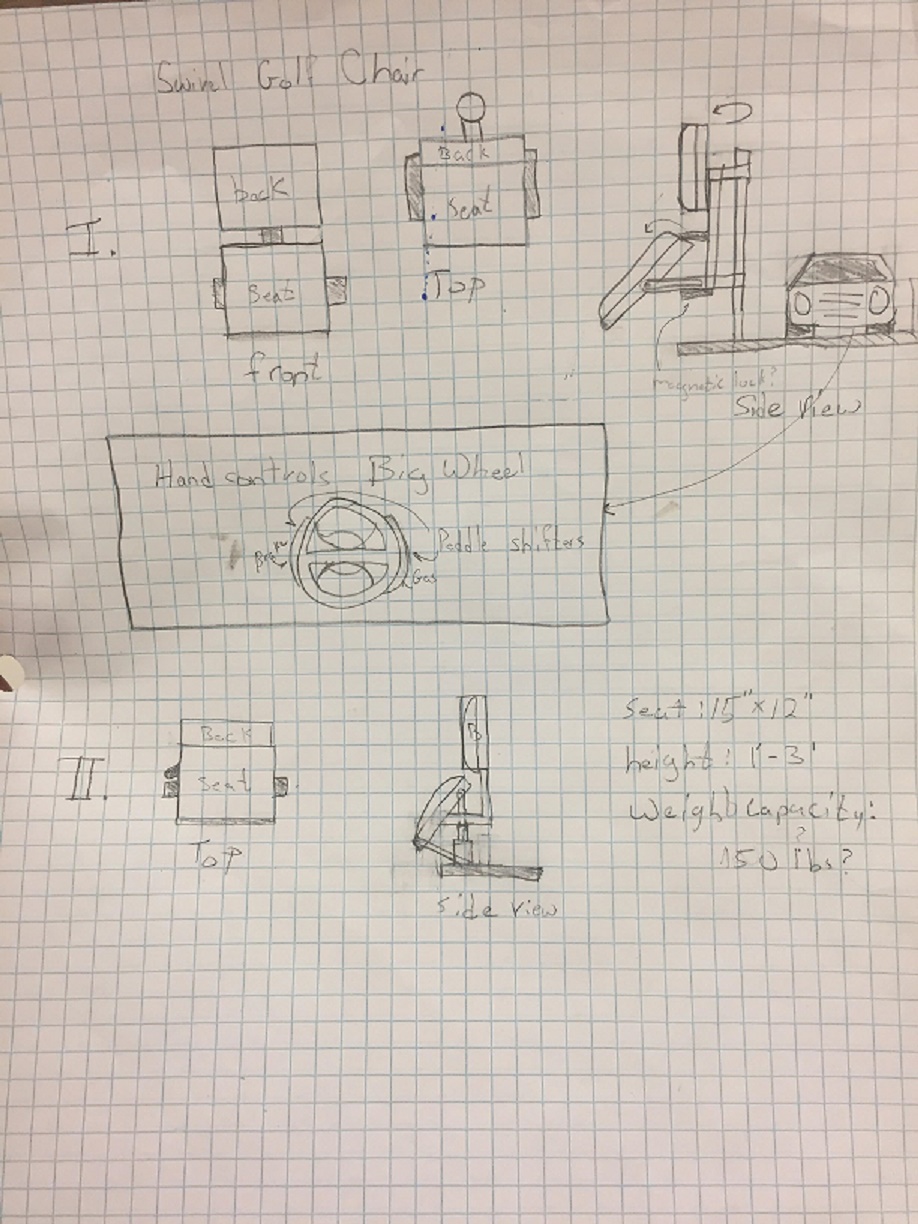 Swivel Golf Chair
I.
back
Seat
front
Back
Seat
Top
magnetic lock?
Side View
Hand controls Big Wheel
Break
Paddle shifters
Gas
II.
Back
Seat
Top
B
side view
seat: 15" x 12"
height: 1'-3'
Weight capacity:
?
150 lbs?